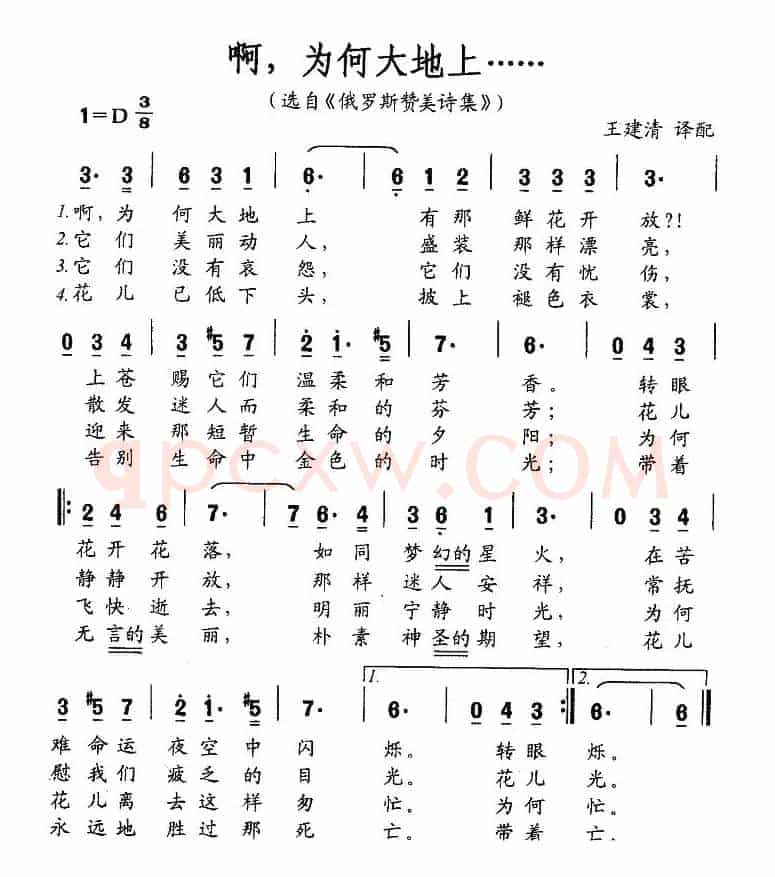 啊，为何大地上……
（选自《俄罗斯赞美诗集》）
1=D 3/8
王建清 译配
3· 3 | 6 3 1 | 6· | 6 1 2 | 3 3 3 | 3· |
1.啊，为 何大地 上 有那 鲜花开 放?!
2.它们 美丽动 人， 盛装 那样漂 亮，
3.它们 没有哀 怨， 它们 没有忧 伤，
4.花儿 已低下 头， 披上 褪色衣 裳，
0 3 4 | 3 #5 7 | 2 1· #5 | 7· | 6· | 0 4 3 |
上苍 赐它们 温柔和 芳 香。 转眼
散发 迷人而 柔和的 芬 芳； 花儿
迎来 那短暂 生命的 夕 阳； 为何
告别 生命中 金色的 时 光； 带着
qpcxw.COM
‖: 2 4 6 | 7· | 7 6· 4 | 3 6 1 | 3· | 0 3 4 |
花开花 落， 如同 梦幻的星 火， 在苦
静静开 放， 那样 迷人安 祥， 常抚
飞快逝 去， 明丽 宁静时 光， 为何
无言的美 丽， 朴素 神圣的期 望， 花儿
1. 2.
3 #5 7 | 2 1· #5 | 7· | 6· | 0 4 3 :‖ 6· | 6 ‖
难命运 夜空中 闪 烁。 转眼 烁。
慰我们 疲乏的 目 光。 花儿 光。
花儿离 去这样 匆 忙。 为何 忙。
永远地 胜过那 死 亡。 带着 亡。